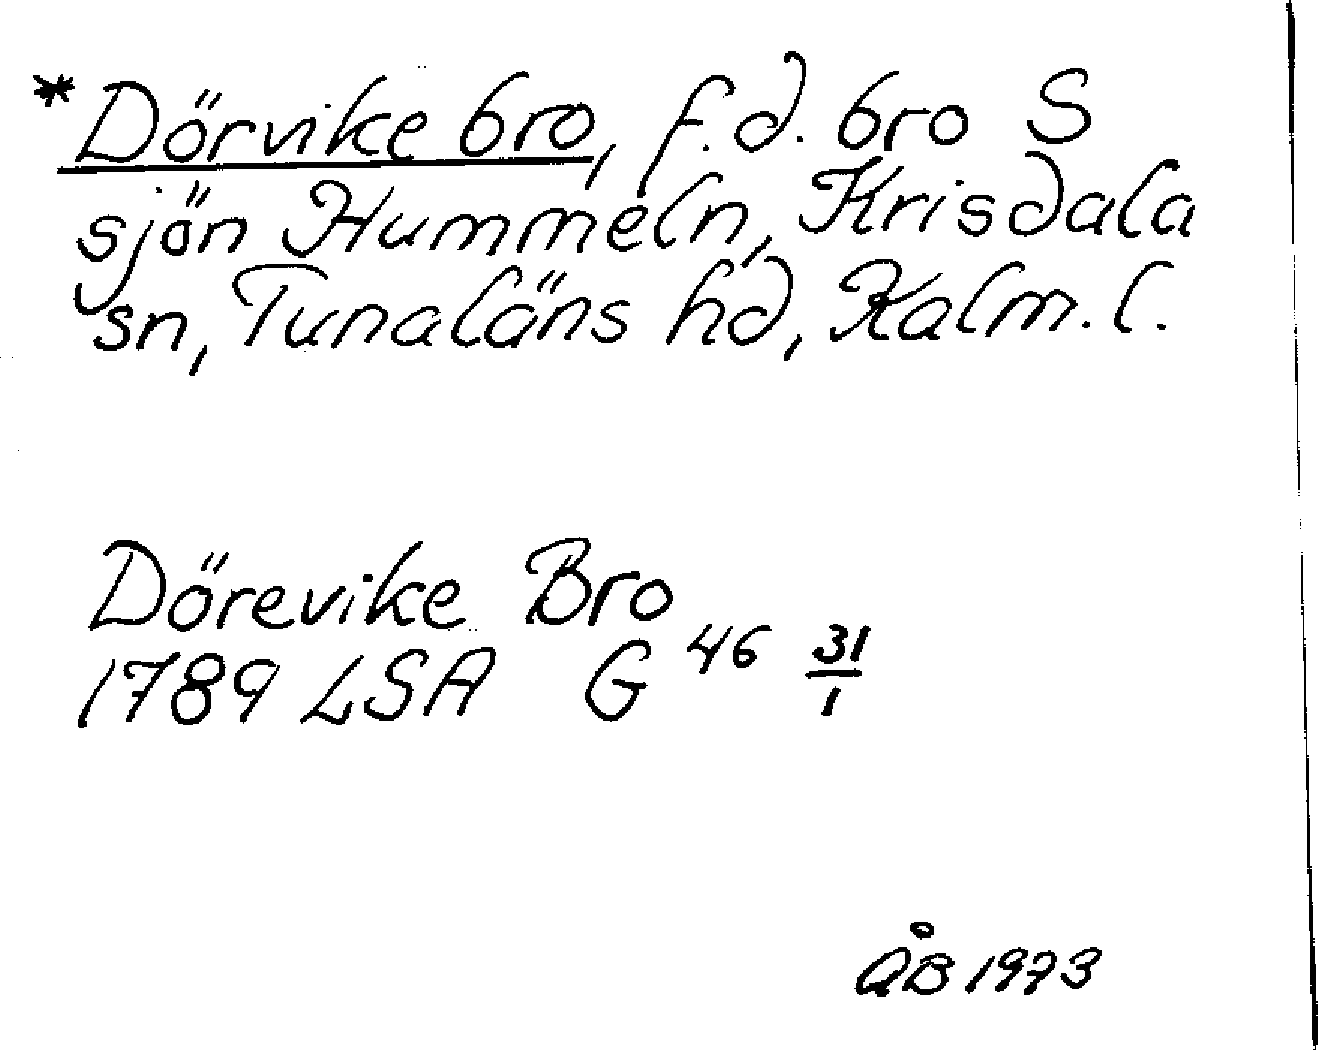 *Dörvike bro, f.d. bro S
sjön Hummeln, Krisdala
sn, Tunaläns hd, Kalm. l.
Dörevike Bro
1789 LSA G 46 31/1
ÅB 1973